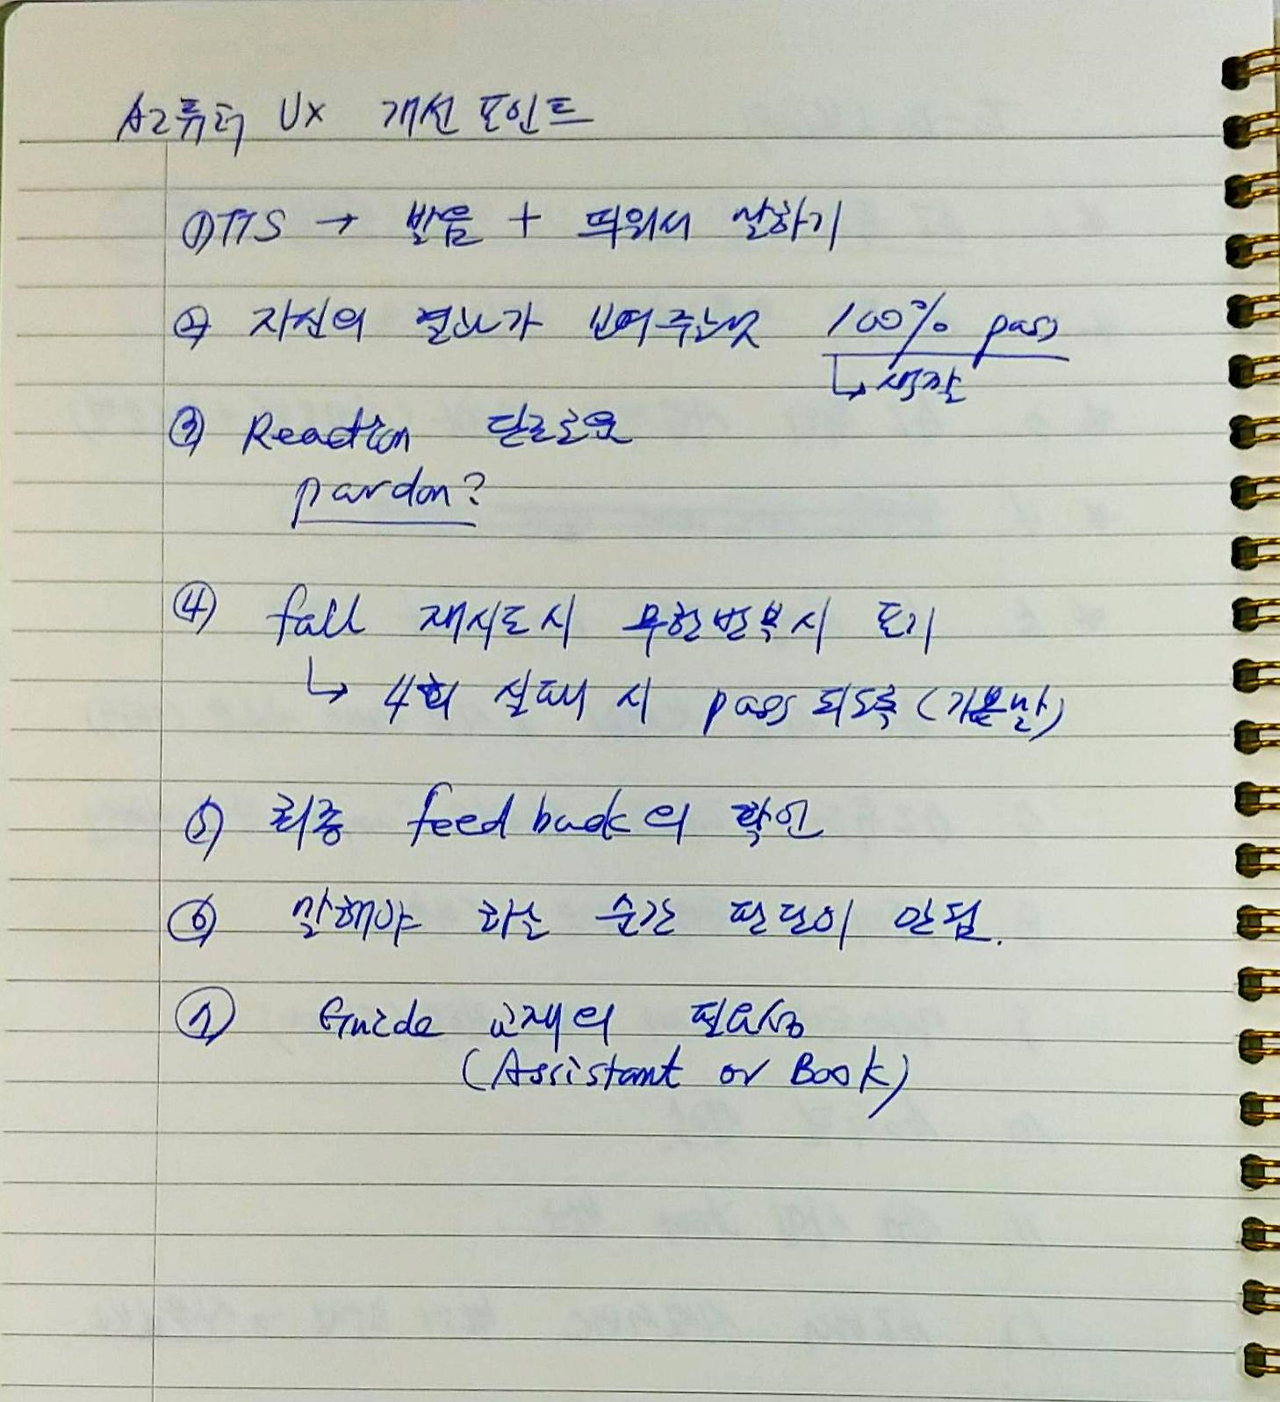 AI튜터 UX 개선 포인트
① TTS → 발음 + 띄워서 말하기
② 자신의 결과가 보여주는것 100% pass
↳ 생각
③ Reaction 단조로움
pardon?
④ fall 재시도시 무한반복시 포기
↳ 4회 실패 시 pass 되도록 (기본만)
⑤ 최종 feedback의 확인
⑥ 말해야 하는 순간 판단이 안됨.
⑦ Guide 교재의 필요성
(Assistant or Book)